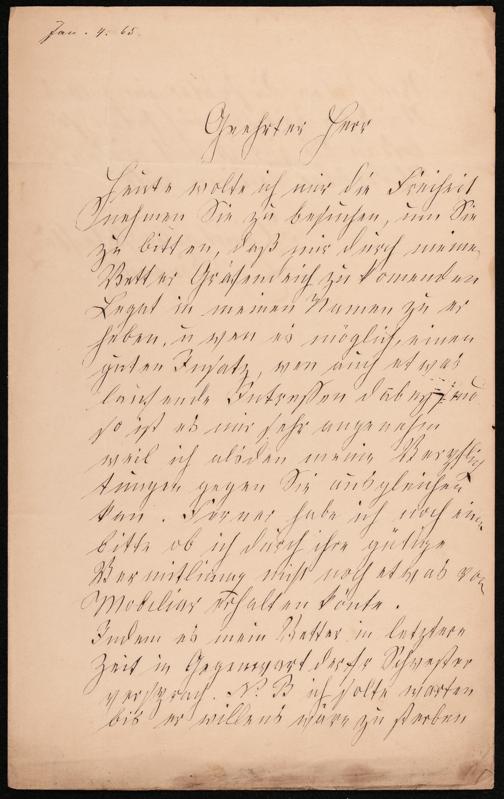 Jan. 4. 65.
Geehrter Herr
Heute wolte ich mir die Freiheit
nehmen Sie zu besuchen, um Sie
zu bitten, daß mir durch meine
Vetter Gräsendeich zu komenden
Legat in meinen Namen zu er
heben, u wen es möglich, einen
guten Insatz, wen auch etwas
laufende Intressen dabey sind
so ist es mir sehr angenehm
weil ich alsden meine Verpflich
tungen gegen Sie ausgleichen
kan. Ferner habe ich noch eine
bitte ob ich durch ihre gütige
Vermittlung nicht noch etwas von
Mobiliar erhalten könte.
Indem es mein Vetter in letztere
Zeit in Gegenwart der Schwester
versprach. N. B ich solte warten
bis er willens wäre zu sterben